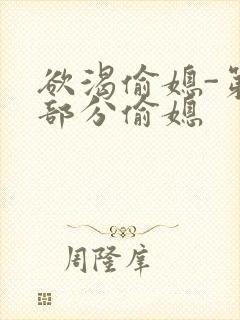 欲渴偷媳-第
部分偷媳
周隆庠